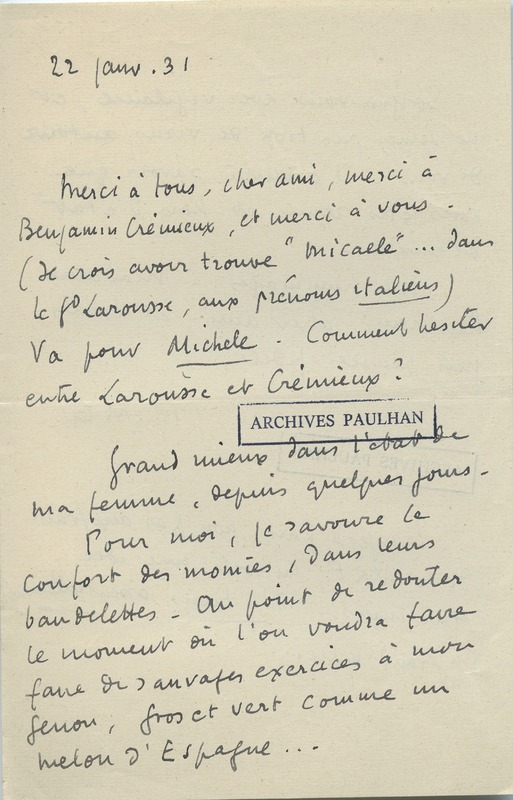 22 janv. 31
Merci à tous, cher ami, merci à
Benjamin Crémieux, et merci à vous.
(Je crois avoir trouvé "Micaele"... dans
le Gd Larousse, aux prénoms italiens)
Va pour Michele. Comment hésiter
entre Larousse et Crémieux ?
ARCHIVES PAULHAN
Grand mieux dans l'état de
ma femme, depuis quelques jours.
Pour moi, je savoure le
confort des momies, dans leurs
bandelettes - Au point de redouter
le moment où l'on voudra faire
faire de sauvages exercices à mon
genou, gros et vert comme un
melon d'Espagne...